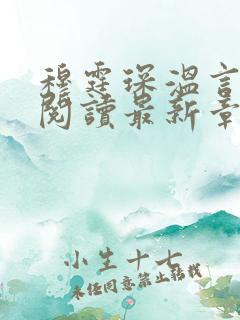 穆霆琛温言
阅读最新章
小生十七
未经同意禁止转载